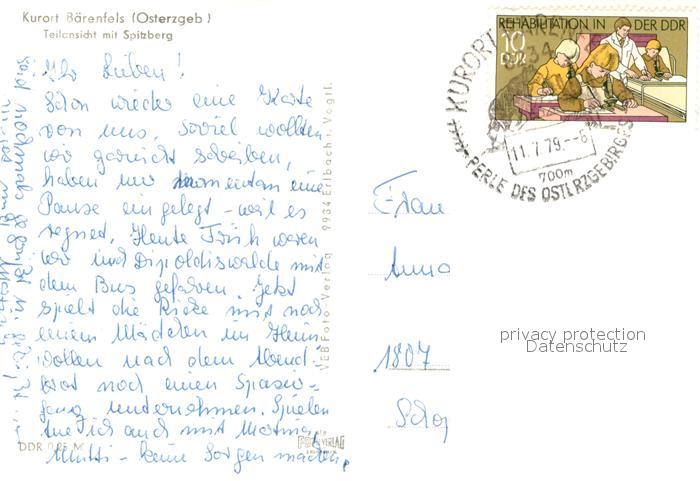 Kurort Bärenfels (Osterzgeb)
Teilansicht mit Spitzberg
REHABILITATION IN DER DDR
10
DDR
KURORT
PERLE DES OSTERZGEBIRGES
11.7.79.--6
700m
Ihr Lieben!
Schon wieder eine Karte
von uns, soviel wollten
wir garnicht schreiben,
haben nur momentan eine
Pause eingelegt - weil es
regnet. Heute Früh waren
wir nach Dipoldiswalde mit
dem Bus gefahren. Jetzt
spielt die mit noch
einem Mädchen im Heim
wollen nach dem Abend-
brot noch einen Spazier-
gang unternehmen. Spielen
tue ich auch mit
Mutti - keine Sorgen machen,
VEB Foto-Verlag 9934 Erlbach i. Vogtl.
Frau
Anna
1807
Schop
privacy protection
Datenschutz
DDR 0,25 M
VERLAG